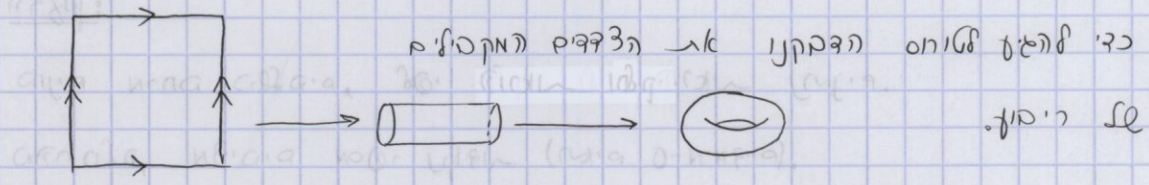 כדי להגיע לטורוס הדבקנו את הצדדים המקבילים
של ריבוע.